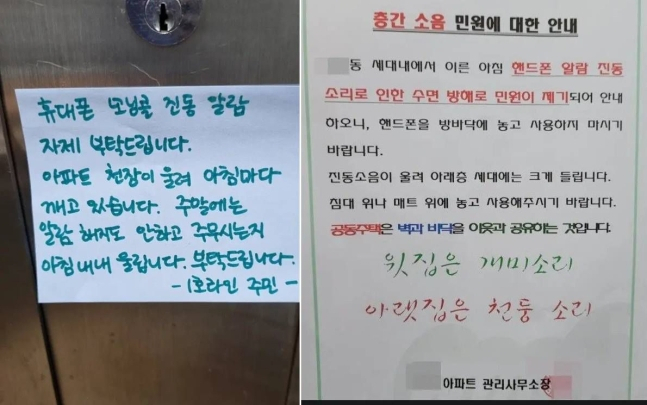 휴대폰 모닝콜 진동 알람
자제 부탁드립니다.
아파트 천장이 울려 아침마다
깨고 있습니다. 주말에는
알람 해지도 안하고 주무시는지
아침내내 울립니다. 부탁드립니다.
- 1호라인 주민 -
층간 소음 민원에 대한 안내
동 세대내에서 이른 아침 핸드폰 알람 진동
소리로 인한 수면 방해로 민원이 제기되어 안내
하오니, 핸드폰을 방바닥에 놓고 사용하지 마시기
바랍니다.
진동소음이 울려 아래층 세대에는 크게 들립니다.
침대 위나 매트 위에 놓고 사용해주시기 바랍니다.
공동주택은 벽과 바닥을 이웃과 공유하는 것입니다.
윗집은 개미소리
아랫집은 천둥 소리
아파트 관리사무소장